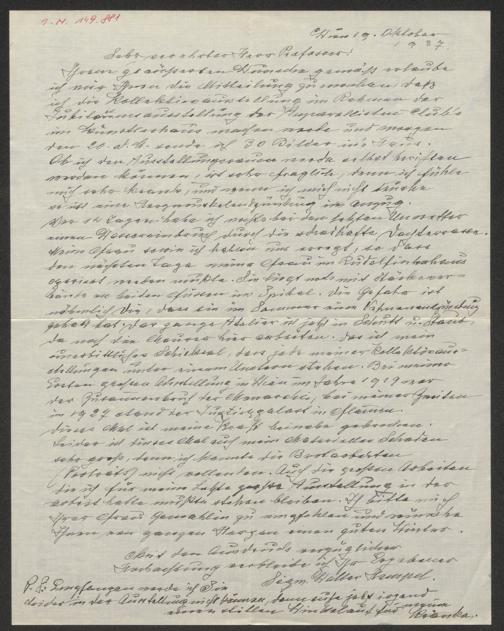 I.N. 149.881
Wien 19. Oktober
1937.
Sehr verehrter Herr Professor!
Ihrem geäusserten Wunsche gemäss erlaube
ich mir Ihnen die Mitteilung zu machen, dass
ich die Kollektivausstellung im Rahmen der
Jubiläumsausstellung des Aquarellisten Clubs
im Künstlerhaus machen werde und morgen
den 20. d. M. sende ich 30 Bilder ins Haus.
Ob ich den Ausstellungsraum werde selbst
werden können, ist sehr fraglich, denn ich fühle
mich sehr krank, und wenn ich mich nicht täusche
ist eine im Anzug.
Vor 14 Tagen habe ich nachts bei dem letzten Unwetter
einen Wassereinbruch durch die schadhafte Dachterrasse.
Meine Frau sowie ich haben uns erregt, so dass
den nächsten Tag meine Frau im Rudolfinerhaus
operiert werden musste. Sie liegt noch mit
an beiden Füssen im Spital. Die Gefahr ist
nämlich die, dass sie im Sommer eine Venenentzündung
gehabt hat. Das ganze Atelier ist jetzt in Schutt u. Staub,
da noch die Maurer hier arbeiten. Das ist mein
unerbittliches Schicksal, dass jede meiner Kollektivaus-
stellungen unter einem Unstern stehen. Bei meiner
ersten grossen Ausstellung in Wien im Jahre 1919 war
der Zusammenbruch der Monarchie, bei meiner zweiten
in 1927 stand der Justizpalast in Flammen.
Dieses Mal ist meine Kraft beinahe gebrochen.
Leider ist dieses Mal auch mein materieller Schaden
sehr gross, denn ich konnte die Brotarbeiten
(Porträts) nicht vollenden. Auch die grossen Arbeiten
die ich für meine letzte grosse Ausstellung in der
hatte mussten stehen bleiben. Ich bitte mich
Ihrer Frau Gemahlin zu empfehlen und wünsche
Ihnen von ganzem Herzen einen guten Winter.
Mit dem Ausdruck vorzüglicher
Hochachtung verbleibe ich Ihr Ergebener
Sigm. Walter Hampel.
P.S. Empfangen werde ich Sie
leider in der Ausstellung nicht können, denn ich suche jetzt irgend
einen stillen Winkel auf für meine
Kranke.